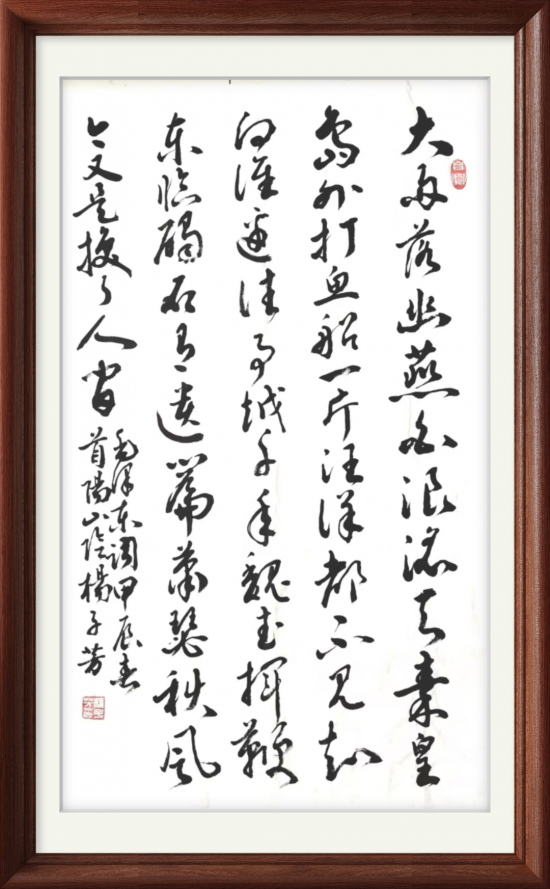 大雨落幽燕白浪滔天秦皇
岛外打鱼船一片汪洋都不见知
向谁边往事越千年魏武挥鞭
东临碣石有遗篇萧瑟秋风
今又是换了人间
毛泽东词甲辰春
首陽山阴楊子芳